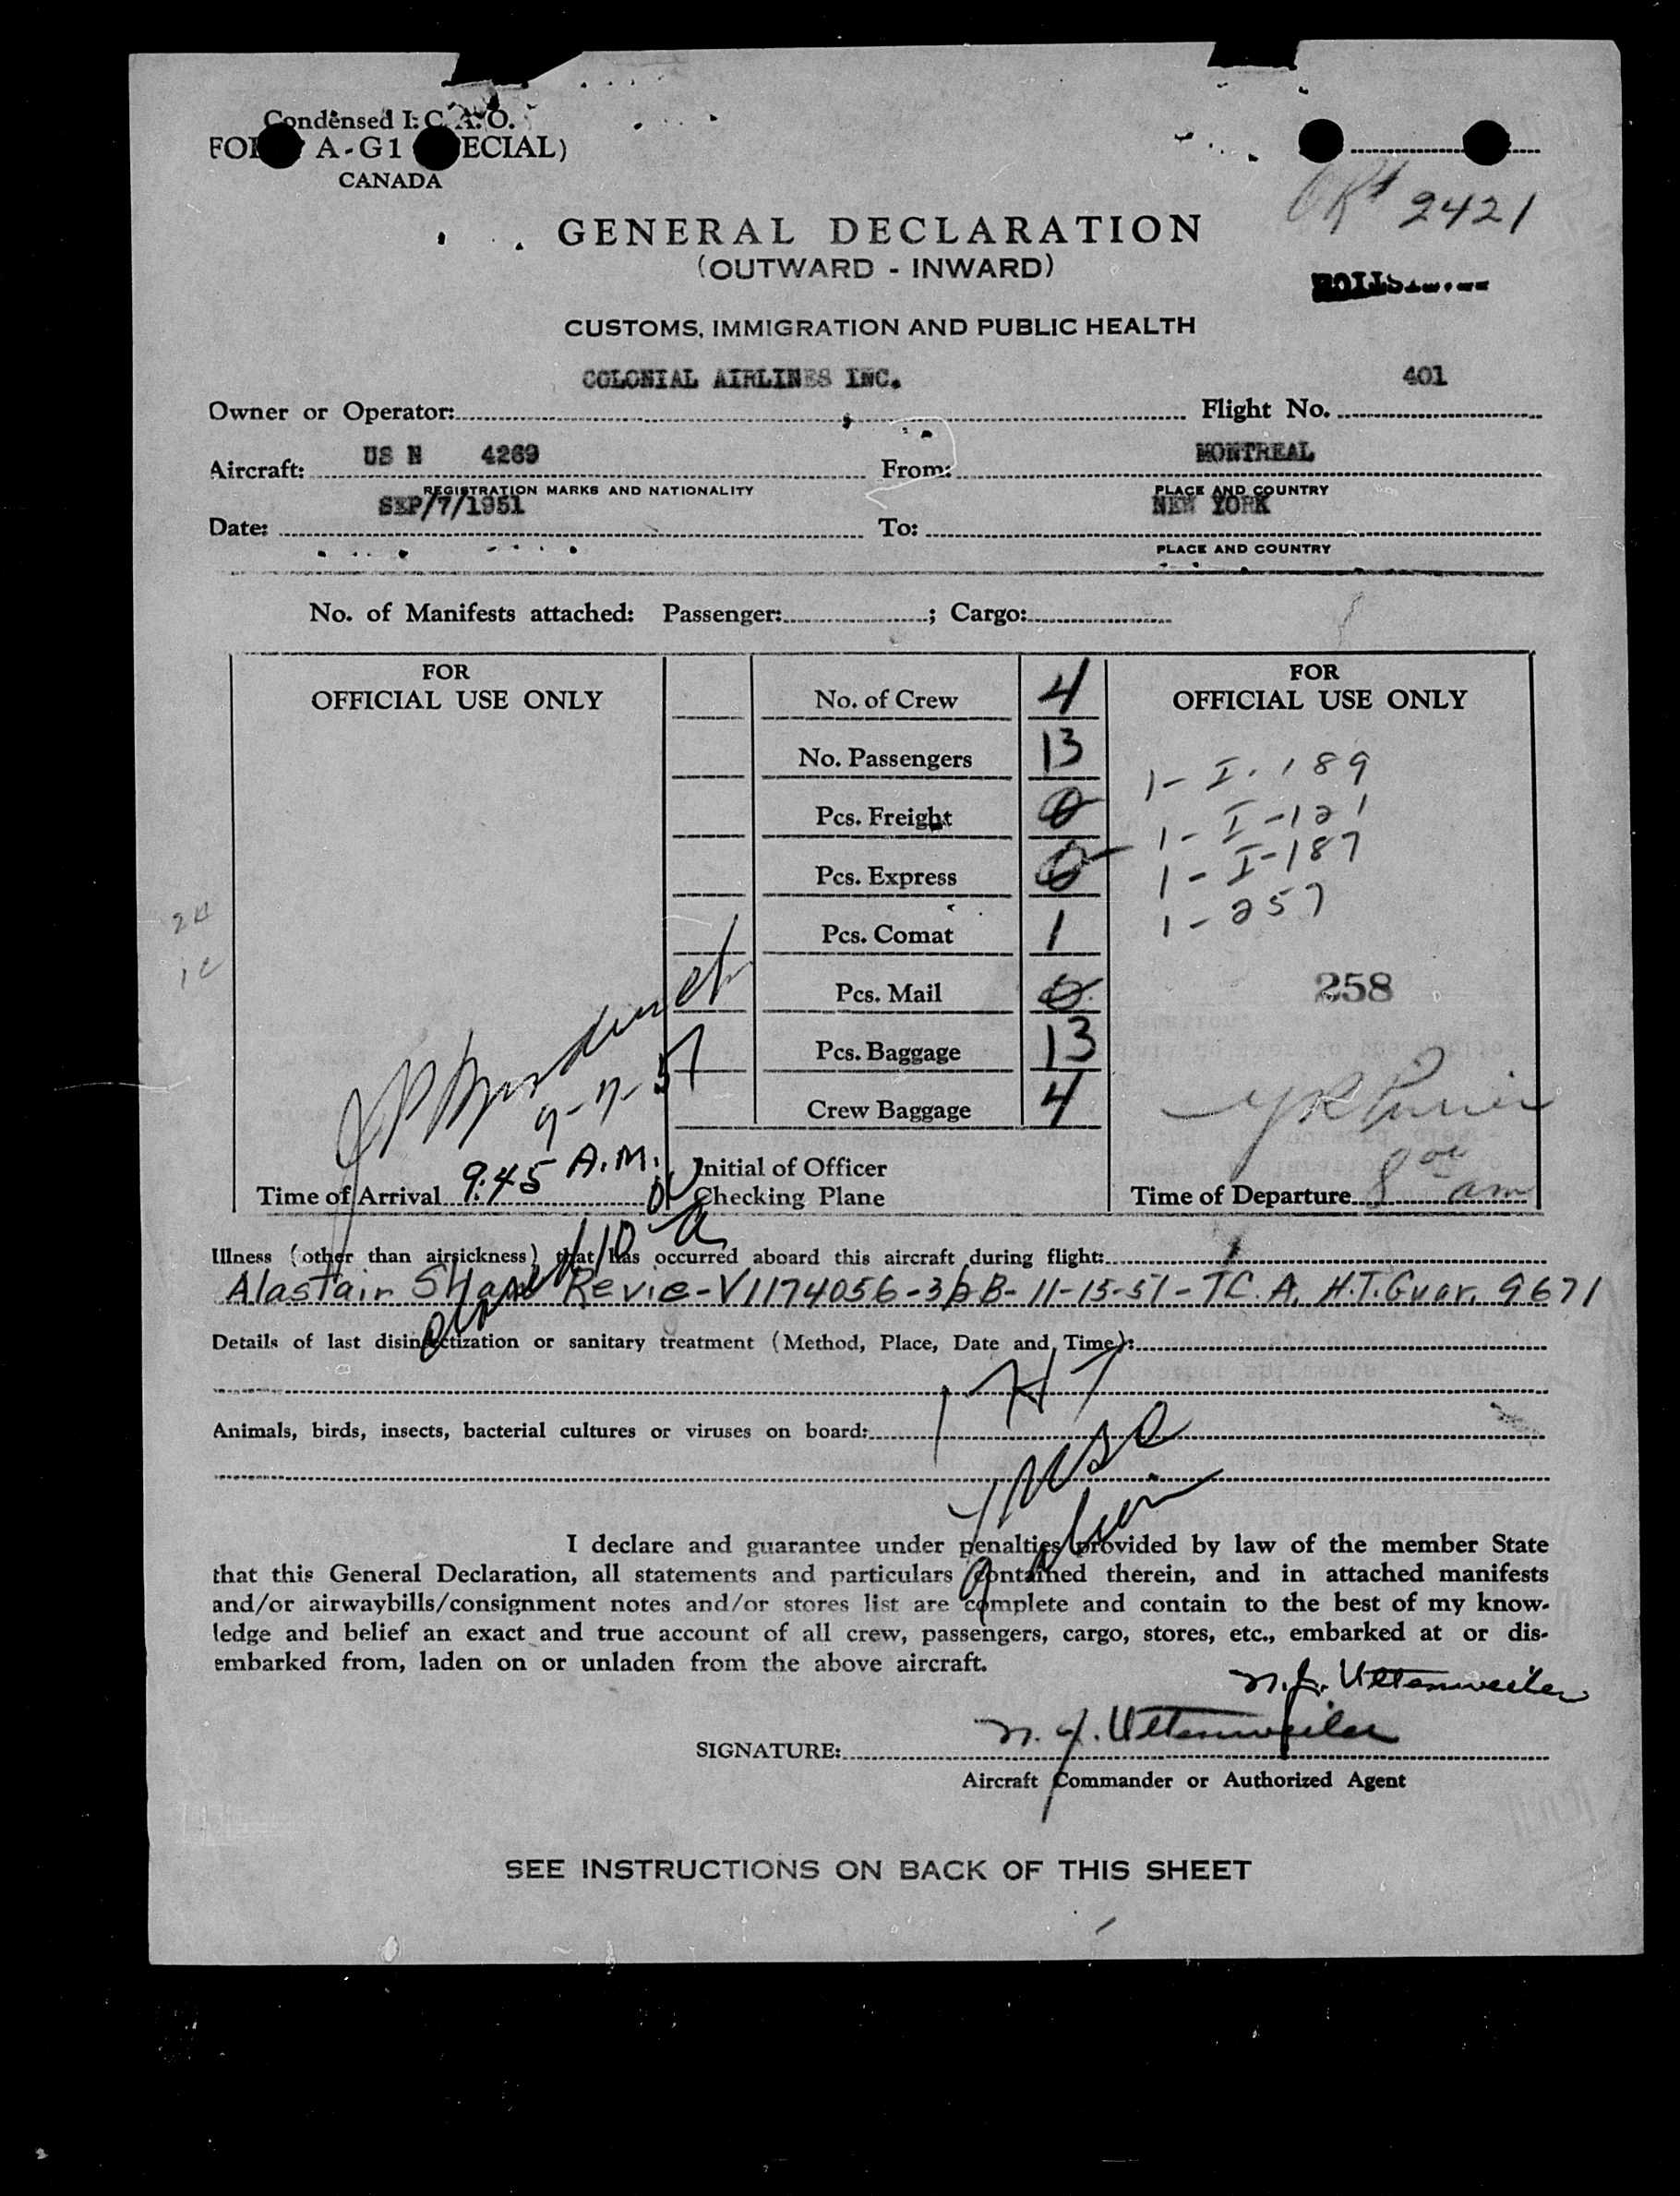 Condensed I.C.A.O.
A-G1 ECIAL)
CANADA
2421
GENERAL DECLARATION
(OUTWARD - INWARD)
CUSTOMS, IMMIGRATION AND PUBLIC HEALTH
COLONIAL AIRLINES INC. 401
Owner or Operator: Flight No.
US N 4269 MONTREAL
Aircraft: From:
REGISTRATION MARKS AND NATIONALITY PLACE AND COUNTRY
SEP/7/1951 NEW YORK
Date: To:
PLACE AND COUNTRY
No. of Manifests attached: Passenger: ; Cargo:
FOR
OFFICIAL USE ONLY
No. of Crew 4
No. Passengers 13
Pcs. Freight 0
Pcs. Express 0
Pcs. Comat 1
Pcs. Mail 0
Pcs. Baggage 13
Crew Baggage 4
FOR
OFFICIAL USE ONLY
1- I-189
1- I-121
1- I-187
1-257
258
9-7-51
Time of Arrival 9:45 A.M.
Initial of Officer
Checking Plane
Time of Departure 8 00 am
Illness (other than airsickness) that has occurred aboard this aircraft during flight:
Alastair Revie-V1174056-3 B-11-15-51-T.C.A. H.T. Guar. 9671
Details of last disinsectization or sanitary treatment (Method, Place, Date and Time):
1 HT
Animals, birds, insects, bacterial cultures or viruses on board:
I declare and guarantee under penalties provided by law of the member State
that this General Declaration, all statements and particulars contained therein, and in attached manifests
and/or airwaybills/consignment notes and/or stores list are complete and contain to the best of my know-
ledge and belief an exact and true account of all crew, passengers, cargo, stores, etc., embarked at or dis-
embarked from, laden on or unladen from the above aircraft.
N. J. Uttenweiler
N. J. Uttenweiler
SIGNATURE:
Aircraft Commander or Authorized Agent
SEE INSTRUCTIONS ON BACK OF THIS SHEET